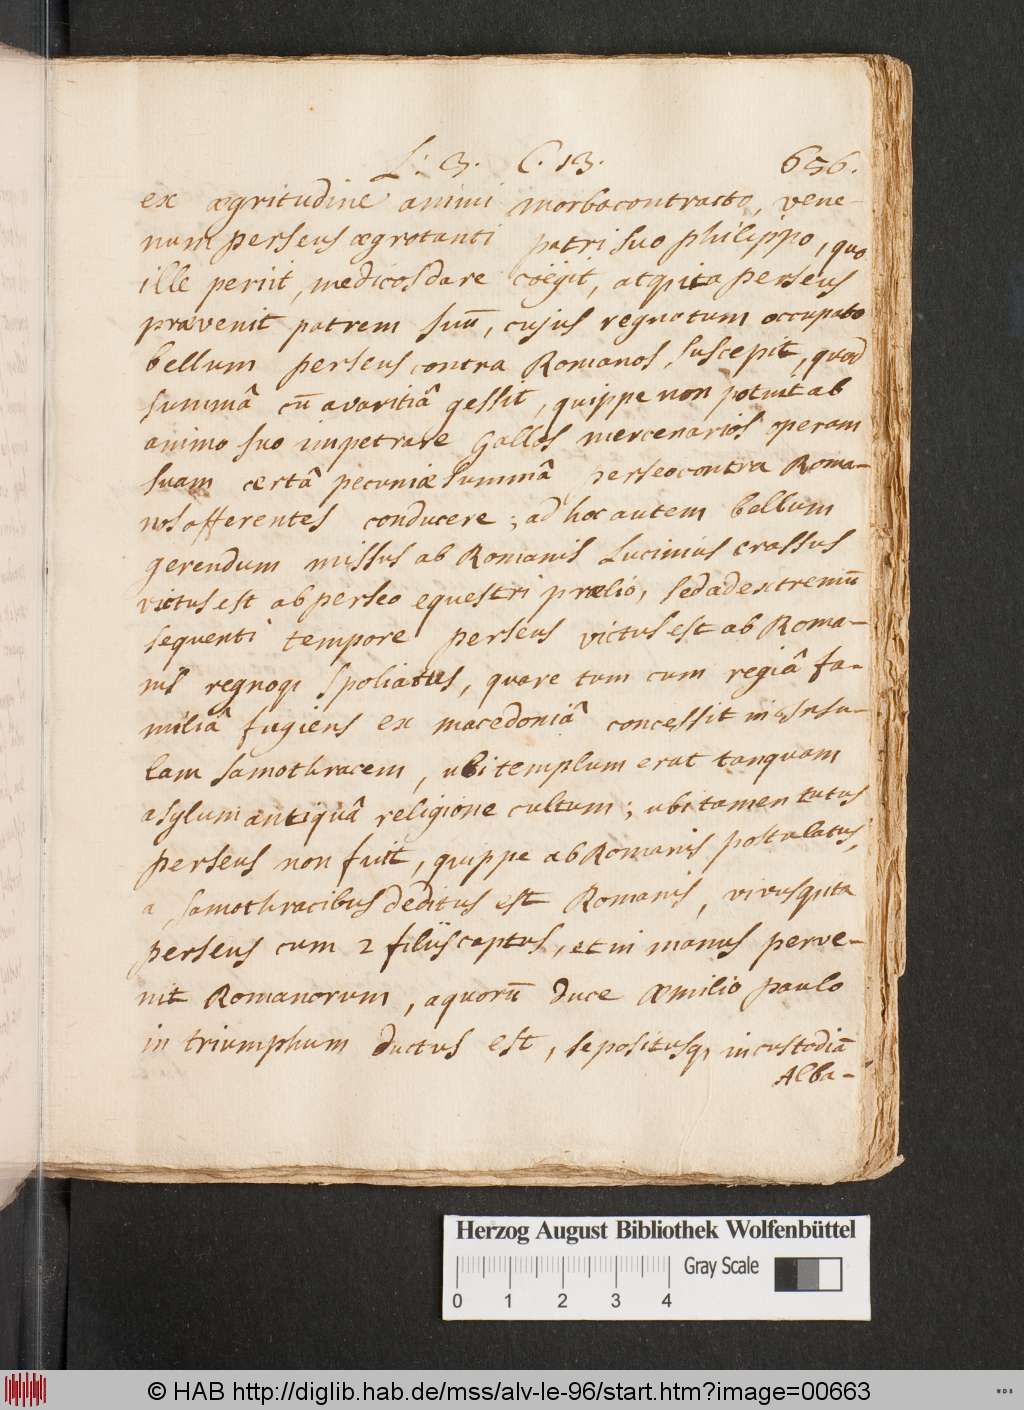 L: 3. C. 13. 656.
ex ægritudine animi morbo contracto, vene-
num perseus ægrotanti patri suo philippo, quo
ille periit, medicos dare coëgit, atq; ita perseus
prævenit patrem suū, cujus regno tum occupato
bellum perseus contra Romanos suscepit, quod
summâ cū avaritiâ gessit, quippe non potuit ab
animo suo impetrare Gallos mercenarios operam
suam certâ pecuniæ summâ perseo contra Roma-
nos afferentes conducere; ad hoc autem bellum
gerendum missus ab Romanis Lucinius crassus
victus est ab perseo equestri prælio, sed ad extremū
sequenti tempore perseus victus est ab Roma-
nis regnoq; spoliatus, quare tum cum regiâ fa-
miliâ fugiens ex macedoniâ concessit in insu-
lam samothracem, ubi templum erat tanquam
asylum antiquâ religione cultum; ubi tamen tutus
perseus non fuit, quippe ab Romanis postulatus,
a samothracibus deditus est Romanis, vivus quita
perseus cum 2 filiis captus, et in manus perve-
nit Romanorum, a quorū duce æmilio paulo
in triumphum ductus est, sepositusq; in custodiā
Alba-
Herzog August Bibliothek Wolfenbüttel
Gray Scale
0 1 2 3 4
© HAB http://diglib.hab.de/mss/alv-le-96/start.htm?image=00663